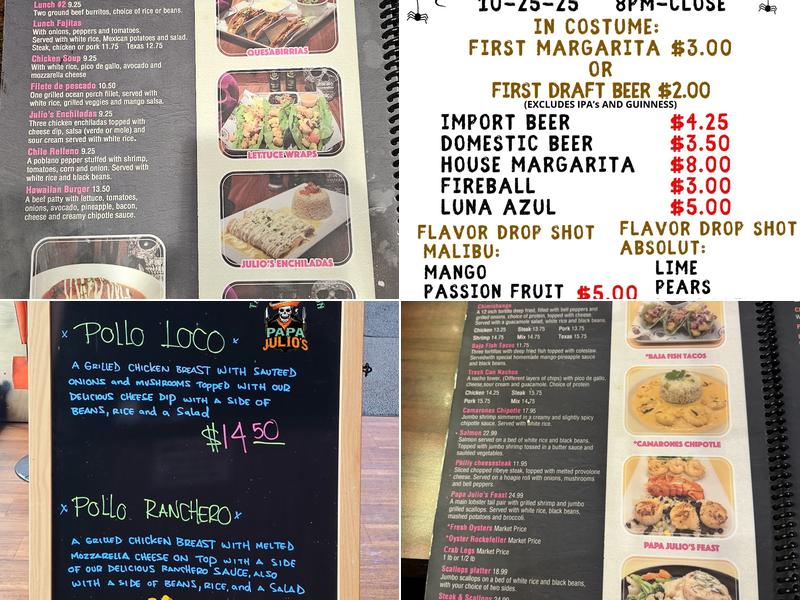 Lunch #2 9.25
Two ground beef burritos, choice of rice or beans.
Lunch Fajitas
With onions, peppers and tomatoes.
Served with white rice, Mexican potatoes and salad.
Steak, chicken or pork 11.75 Texas 12.75
Chicken Soup 9.25
With white rice, pico de gallo, avocado and
mozzarella cheese
Filete de pescado 10.50
One grilled ocean perch fillet, served with
white rice, grilled veggies and mango salsa.
Julio's Enchiladas 9.25
Three chicken enchiladas topped with
cheese dip, salsa (verde or mole) and
sour cream served with white rice.
Chile Relleno 9.25
A poblano pepper stuffed with shrimp,
tomatoes, corn and onion. Served with
white rice and black beans.
Hawaiian Burger 13.50
A beef patty with lettuce, tomatoes,
onions, avocado, pineapple, bacon,
cheese and creamy chipotle sauce.
QUESABIRRIAS
LETTUCE WRAPS
JULIO'S ENCHILADAS
10-25-25 8PM-CLOSE
IN COSTUME:
FIRST MARGARITA $3.00
OR
FIRST DRAFT BEER $2.00
(EXCLUDES IPA's AND GUINNESS)
IMPORT BEER $4.25
DOMESTIC BEER $3.50
HOUSE MARGARITA $8.00
FIREBALL $3.00
LUNA AZUL $5.00
FLAVOR DROP SHOT
MALIBU:
MANGO
PASSION FRUIT $5.00
FLAVOR DROP SHOT
ABSOLUT:
LIME
PEARS
PAPA
JULIO'S
x POLLO LOCO x
A GRILLED CHICKEN BREAST WITH SAUTEED
ONIONS and MUSHROOMS TOPPED WITH OUR
DELICIOUS CHEESE DIP WITH A SIDE OF
BEANS, RICE and a Salad
$14.50
x POLLO RANCHERO x
A GRILLED CHICKEN BREAST WITH MELTED
MOZZARELLA CHEESE ON TOP WITH A SIDE
OF OUR DELICIOUS RANCHERO SAUCE, ALSO
WITH A SIDE OF BEANS, RICE, and a SALAD
Chimichanga
A 12 inch tortilla deep fried, filled with bell peppers and
grilled onions, choice of protein, topped with cheese.
Served with a guacamole salad, white rice and black beans.
Chicken 13.25 Steak 13.75 Pork 13.75
Shrimp 14.75 Mix 14.75 Texas 15.75
Baja Fish Tacos 11.75
Three tortillas with deep fried fish topped with coleslaw.
Served with special homemade mango-pineapple sauce
and black beans.
Trash Can Nachos
A nacho tower, (Different layers of chips) with pico de gallo,
cheese, sour cream and guacamole. Choice of protein
Chicken 14.25 Steak 15.75
Pork 15.75 Mix 14.75
Camarones Chipotle 17.95
Jumbo shrimp simmered in a creamy and slightly spicy
chipotle sauce. Served with white rice.
Salmon 22.99
Salmon served on a bed of white rice and black beans.
Topped with jumbo shrimp tossed in a butter sauce and
sauteed vegetables.
Philly cheesesteak 11.95
Sliced chopped ribeye steak, topped with melted provolone
cheese. Served on a hoagie roll with onions, mushrooms
and bell peppers.
Papa Julio's Feast 24.99
A main lobster tail pair with grilled shrimp and jumbo
grilled scallops. Served with white rice, black beans,
mashed potatoes and broccoli.
*Fresh Oysters Market Price
*Oyster Rockefeller Market Price
Crab Legs Market Price
1 lb or 1/2 lb
Scallops platter 18.99
Jumbo scallops on a bed of white rice and black beans,
with your choice of two sides.
Steak & Scallops 24.99
*BAJA FISH TACOS
*CAMARONES CHIPOTLE
PAPA JULIO'S FEAST